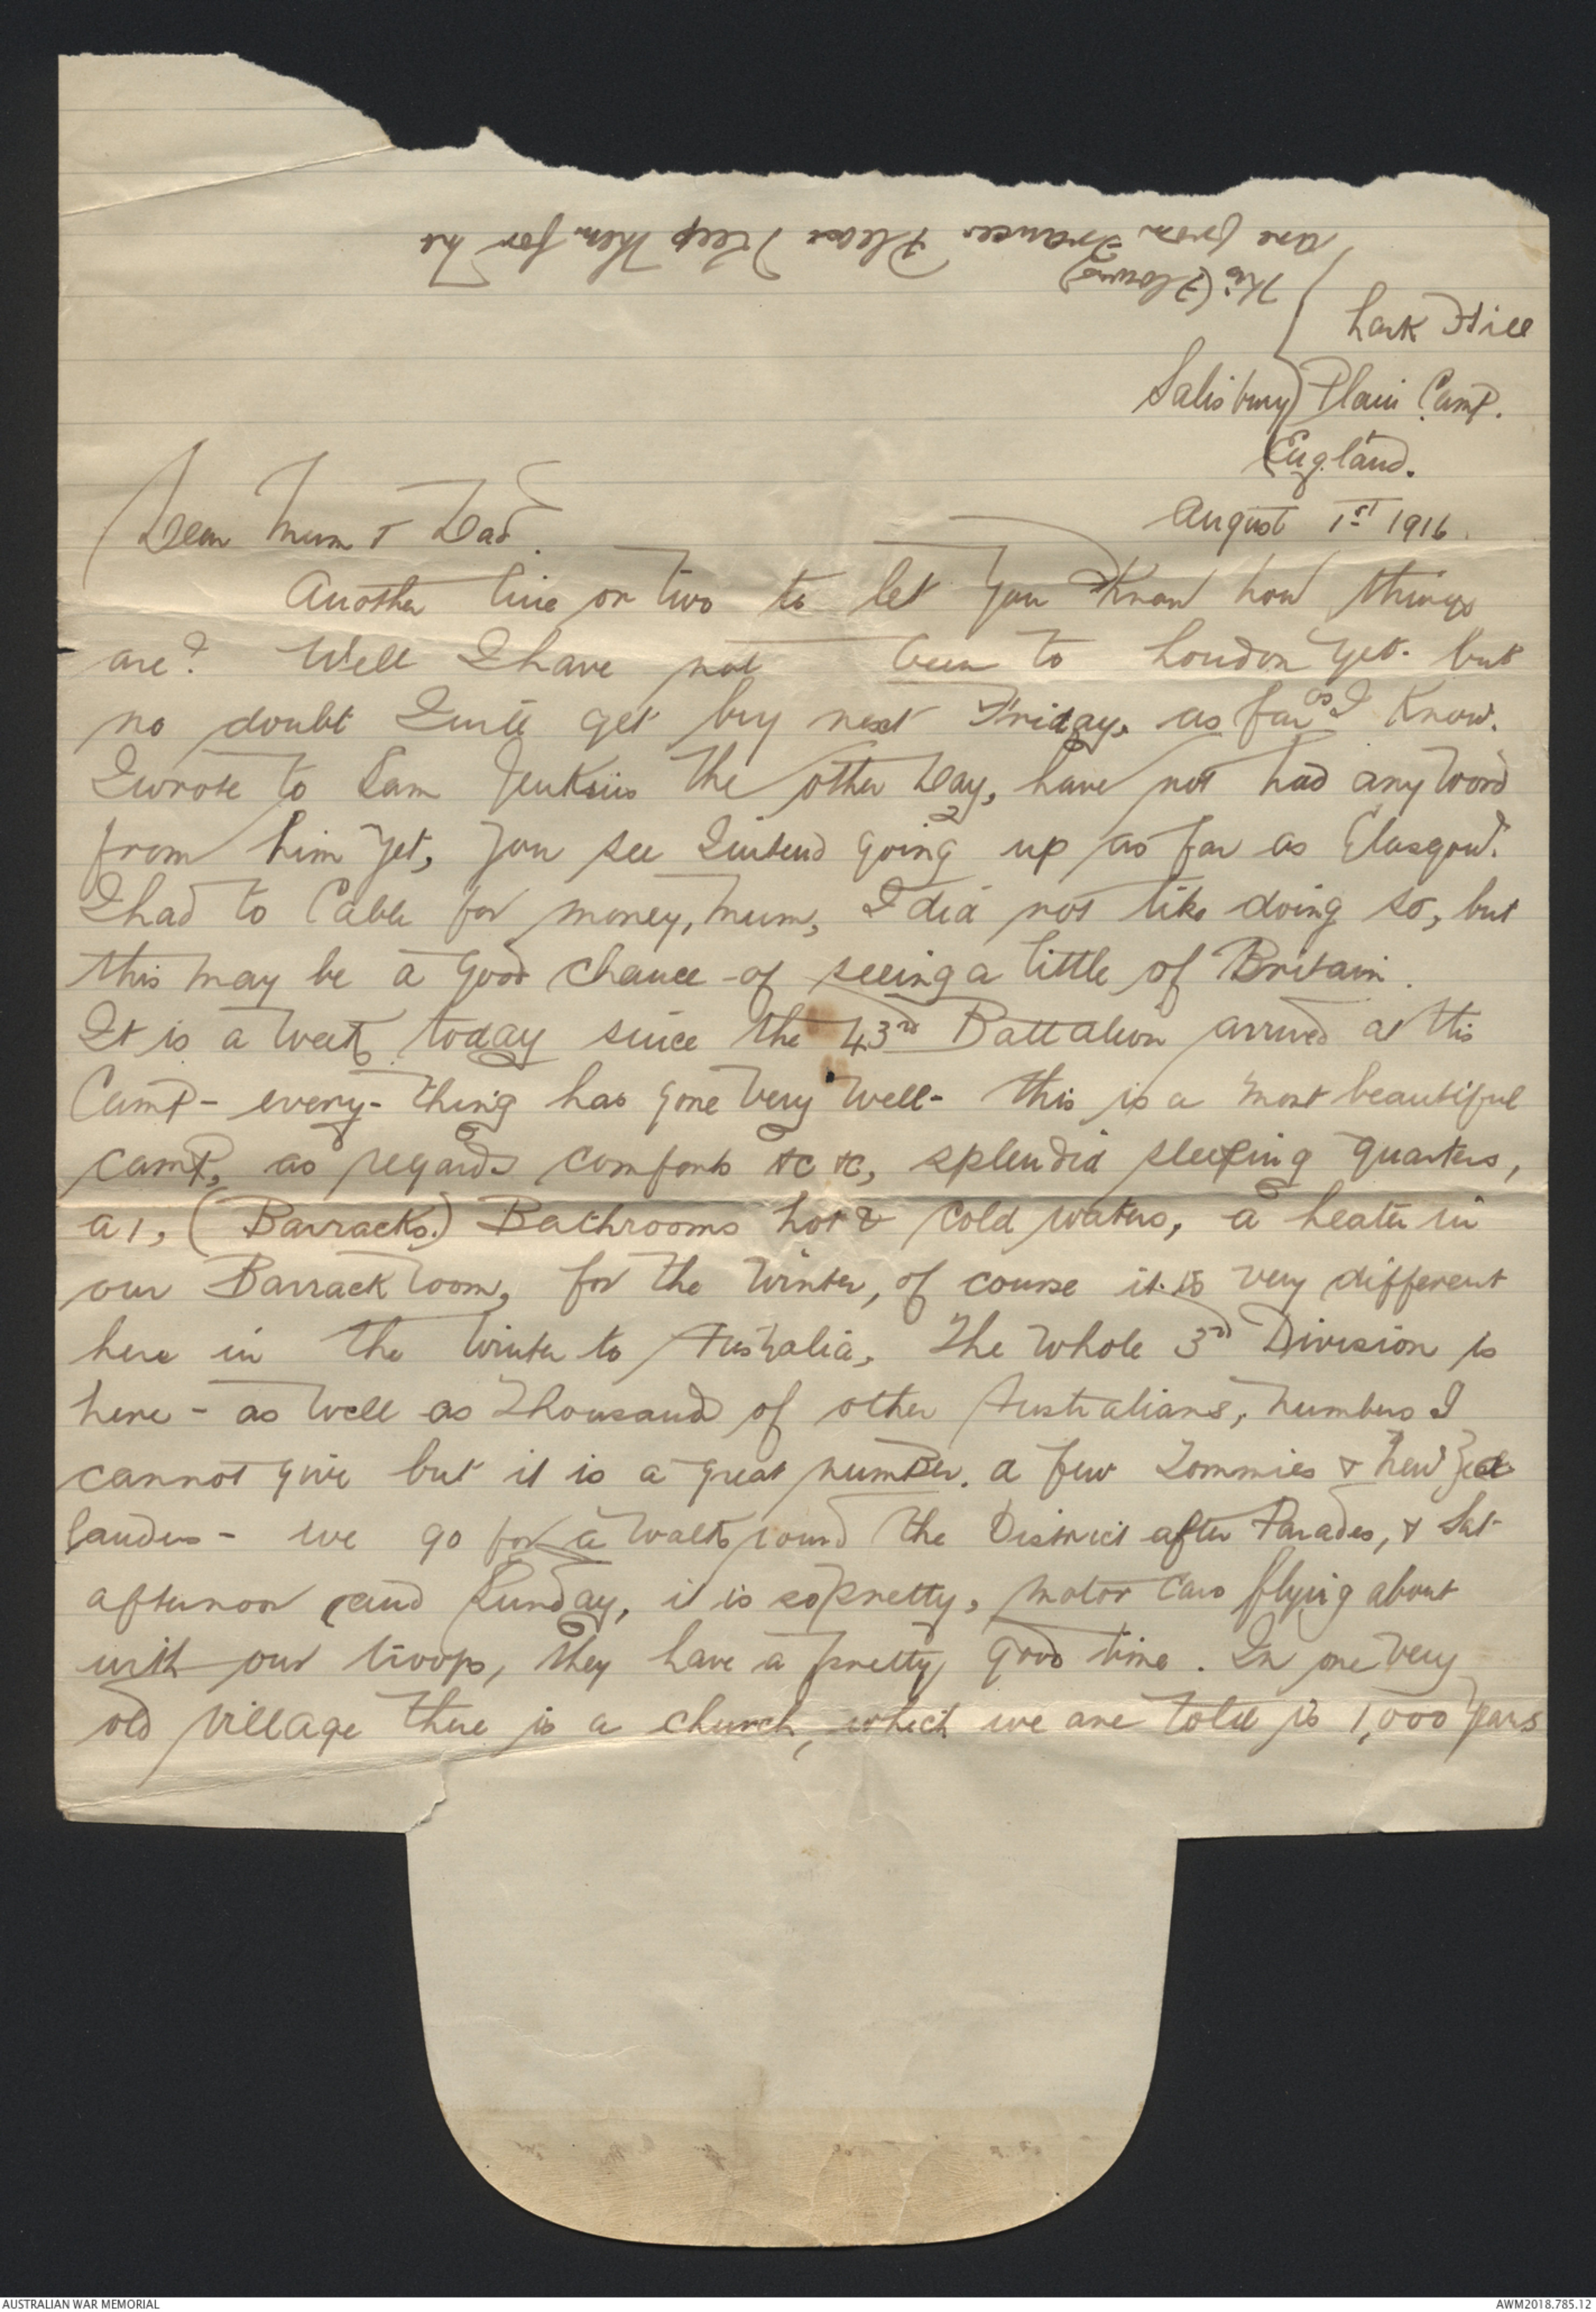 This (Flowers)
are from Frances Please Keep them for me
Lark Hill
Salisbury Plain Camp.
England.
August 1st 1916.
Dear Mum & Dad.
Another line or two to let you Know how things
are? Well I have not been to London yet. but
no doubt I will get by next Friday, as far as I Know.
I wrote to Sam Jenkins the other Day, have not had any word
from him yet, you see I intend going up as far as Glasgow.
I had to Cable for money, Mum, I did not like doing so, but
this may be a Good chance of seeing a little of Britain.
It is a week today since the 43rd Battalion arrived at this
Camp- every-thing has gone very well- this is a most beautiful
camp, as regards comforts &c &c, splendid sleeping quarters,
a1, (Barracks.) Bathrooms hot & cold waters, a heater in
our Barrack room, for the winter, of course it is very different
here in the winter to Australia, The whole 3rd Division is
here - as well as thousand of other Australians, numbers I
cannot give but it is a great number. a few Tommies & New Zea
landers - we go for a walk round the District after Parades, & Sat
afternoon and Sunday, it is so pretty, motor cars flying about
with our troops, they have a pretty good time. In one very
old village there is a church, which we are told is 1,000 years
AUSTRALIAN WAR MEMORIAL
AWM2018.785.12